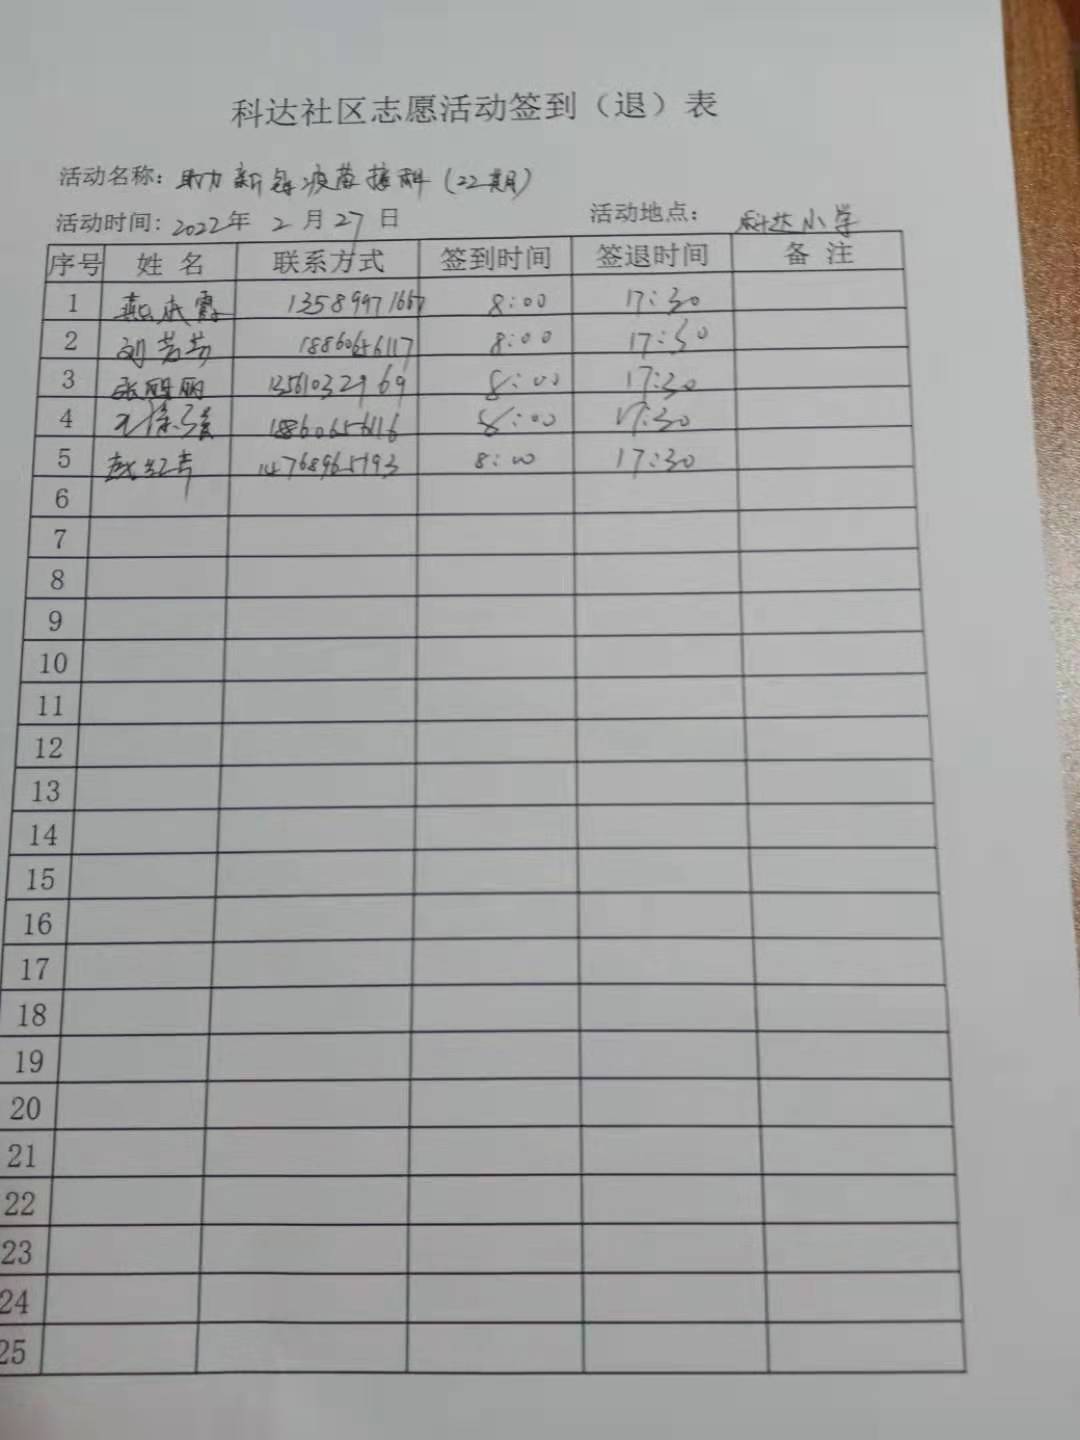 科达社区志愿活动签到（退）表
活动名称：助力新冠疫苗接种（22期）
活动时间：2022年 2月27日 活动地点：科达小学
序号 姓名 联系方式 签到时间 签退时间 备注
1 13589971667 8:00 17:30
2 刘芳芳 18860656117 8:00 17:30
3 张丽丽 13561032969 8:00 17:30
4 18860656116 8:00 17:30
5 14768965793 8:00 17:30
6
7
8
9
10
11
12
13
14
15
16
17
18
19
20
21
22
23
24
25